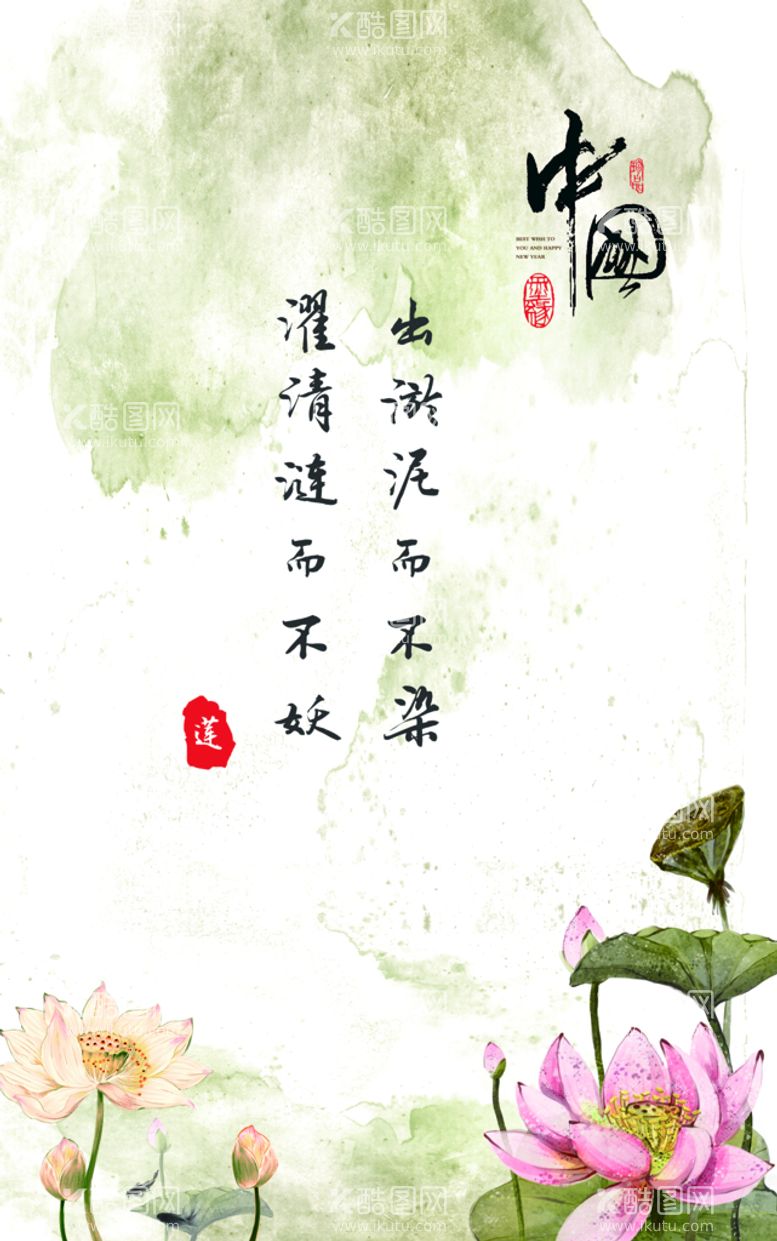 中國
BEST WISH TO
YOU AND HAPPY
NEW YEAR
出淤泥而不染
濯清涟而不妖
莲
酷图网
www.ikutu.com